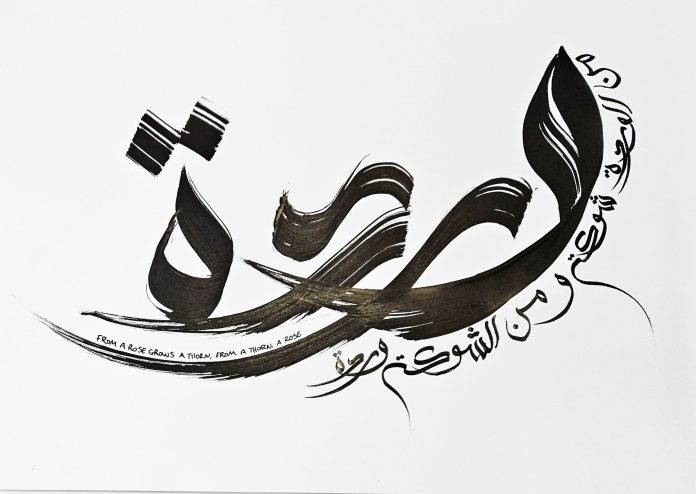 وردة
من الوردة شوكة و من الشوكة وردة
FROM A ROSE GROWS A THORN, FROM A THORN A ROSE